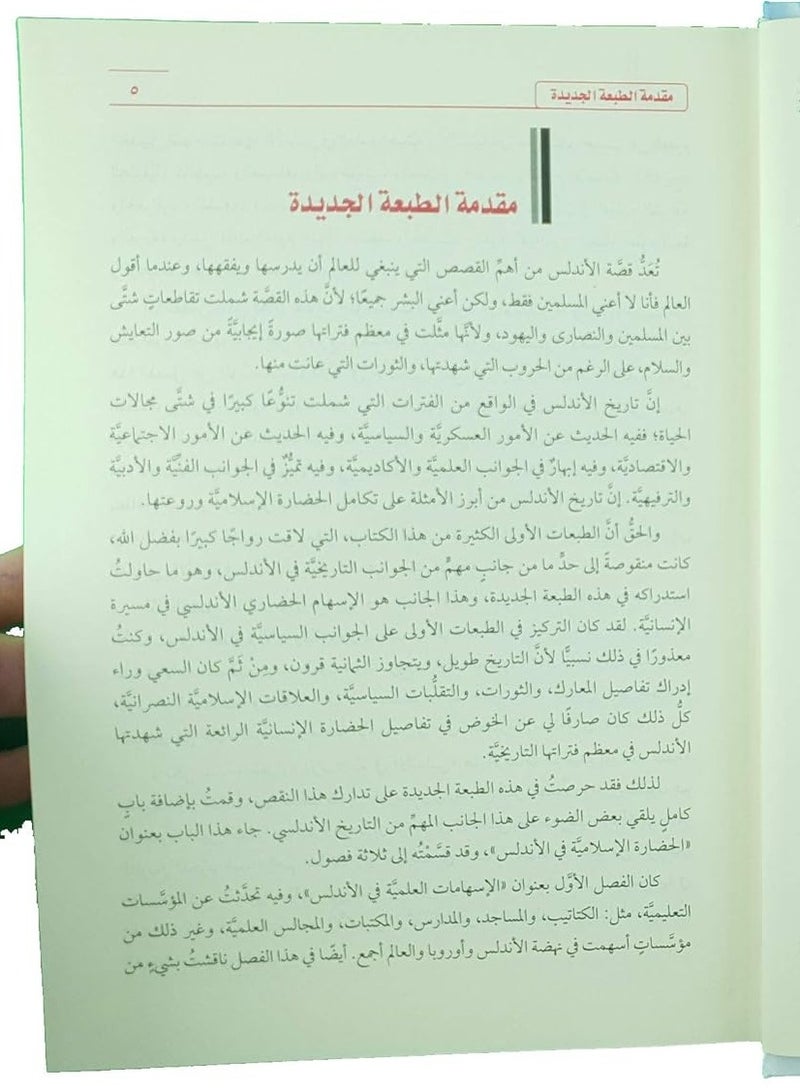 مقدمة الطبعة الجديدة
٥
مقدمة الطبعة الجديدة
تُعَدُّ قصَّة الأندلس من أهمِّ القصص التي ينبغي للعالم أن يدرسها ويفقهها، وعندما أقول
العالم فأنا لا أعني المسلمين فقط، ولكن أعني البشر جميعًا؛ لأنَّ هذه القصَّة شملت تقاطعاتٍ شتَّى
بين المسلمين والنصارى واليهود، ولأنَّها مثَّلت في معظم فتراتها صورةً إيجابيَّةً من صور التعايش
والسلام، على الرغم من الحروب التي شهدتها، والثورات التي عانت منها.
إنَّ تاريخ الأندلس في الواقع من الفترات التي شملت تنوُّعًا كبيرًا في شتَّى مجالات
الحياة؛ ففيه الحديث عن الأمور العسكريَّة والسياسيَّة، وفيه الحديث عن الأمور الاجتماعيَّة
والاقتصاديَّة، وفيه إبهارٌ في الجوانب العلميَّة والأكاديميَّة، وفيه تميُّزٌ في الجوانب الفنِّيَّة والأدبيَّة
والترفيهيَّة. إنَّ تاريخ الأندلس من أبرز الأمثلة على تكامل الحضارة الإسلاميَّة وروعتها.
والحقُّ أنَّ الطبعات الأولى الكثيرة من هذا الكتاب، التي لاقت رواجًا كبيرًا بفضل الله،
كانت منقوصةً إلى حدٍّ ما من جانبٍ مهمٍّ من الجوانب التاريخيَّة في الأندلس، وهو ما حاولتُ
استدراكه في هذه الطبعة الجديدة، وهذا الجانب هو الإسهام الحضاري الأندلسي في مسيرة
الإنسانيَّة. لقد كان التركيز في الطبعات الأولى على الجوانب السياسيَّة في الأندلس، وكنتُ
معذورًا في ذلك نسبيًّا لأنَّ التاريخ طويل، ويتجاوز الثمانية قرون، ومِنْ ثَمَّ كان السعي وراء
إدراك تفاصيل المعارك، والثورات، والتقلُّبات السياسيَّة، والعلاقات الإسلاميَّة النصرانيَّة،
كلُّ ذلك كان صارفًا لي عن الخوض في تفاصيل الحضارة الإنسانيَّة الرائعة التي شهدتها
الأندلس في معظم فتراتها التاريخيَّة.
لذلك فقد حرصتُ في هذه الطبعة الجديدة على تدارك هذا النقص، وقمتُ بإضافة بابٍ
كاملٍ يلقي بعض الضوء على هذا الجانب المهمِّ من التاريخ الأندلسي. جاء هذا الباب بعنوان
«الحضارة الإسلاميَّة في الأندلس»، وقد قسَّمْتُه إلى ثلاثة فصول.
كان الفصل الأوَّل بعنوان «الإسهامات العلميَّة في الأندلس»، وفيه تحدَّثتُ عن المؤسَّسات
التعليميَّة، مثل: الكتاتيب، والمساجد، والمدارس، والمكتبات، والمجالس العلميَّة، وغير ذلك من
مؤسَّساتٍ أسهمت في نهضة الأندلس وأوروبا والعالم أجمع. أيضًا في هذا الفصل ناقشتُ بشيءٍ من